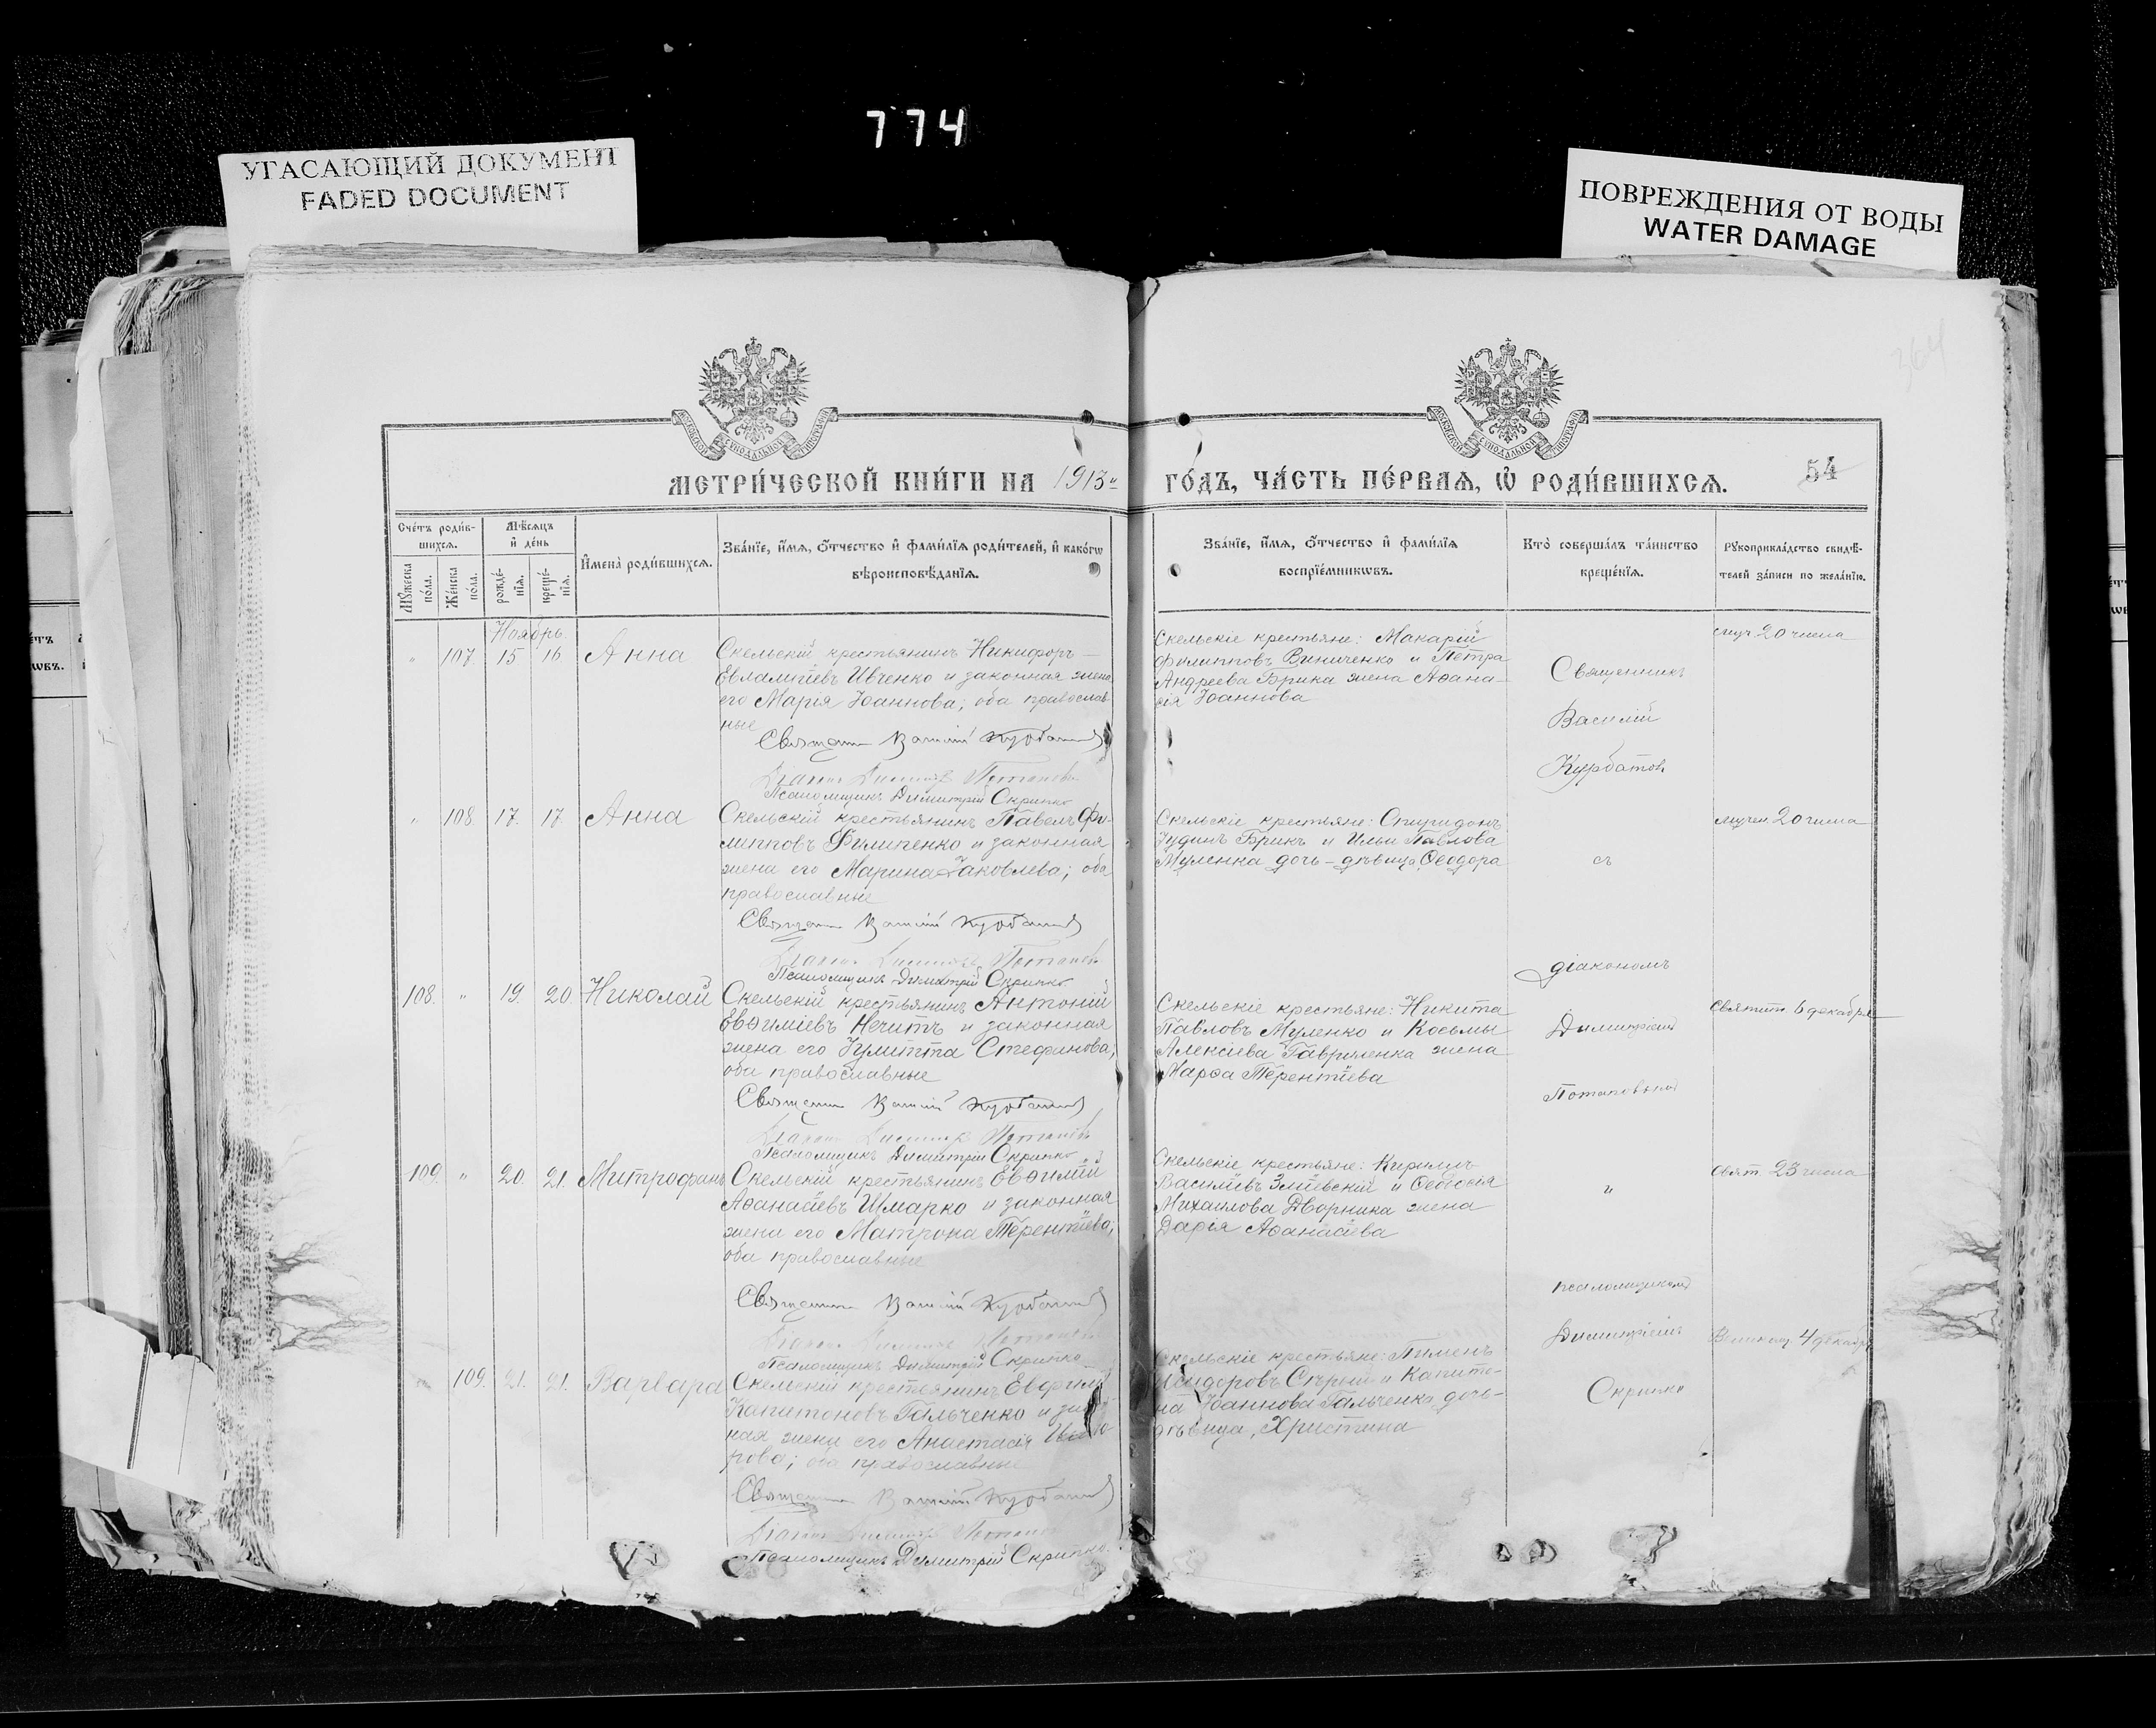 774
УГАСАЮЩИЙ ДОКУМЕНТ
FADED DOCUMENT
ПОВРЕЖДЕНИЯ ОТ ВОДЫ
WATER DAMAGE
364
МЕТРИ́ЧЕСКОЙ КНИ́ГИ НА 1913
ГО́ДЪ, ЧА́СТЬ ПЕ́РВАѦ, Ѡ҆ РОДИ́ВШИХСѦ.
54
Сче́тъ роди́в-
шихсѧ.
Мꙋ́жеска по́ла.
Же́нска по́ла.
Мѣ́сѧцъ и҆ де́нь
рожде́-нїѧ.
креще́-нїѧ.
И҆мена̀ роди́вшихсѧ.
Зва́нїе, и҆́мѧ, ѻ҆́тчество и҆ фами́лїѧ роди́телей, и҆ како́гѡ
вѣроисповѣ́данїѧ.
Зва́нїе, и҆́мѧ, ѻ҆́тчество и҆ фами́лїѧ
воспрїе́мникѡвъ.
Кто̀ соверша́лъ та́инство
креще́нїѧ.
Рꙋкоприкла́дство свидѣ́-
телей за́писи по жела́нїю.
Ноябрь.
" 107 15 16 Анна
Скельскій крестьянинъ Никифоръ
Евлампіевъ Ивченко и законная жена
его Марія Іоаннова; оба православ-
ные
Священн Василій Курбатов
Діакон Димитрій Потапов
Псаломщикъ Димитрій Скрипко
Скельскіе крестьяне: Макарій
Филипповъ Виниченко и Петра
Андреева Брика жена Аѳана-
сія Іоаннова
Священникъ
Василій
Курбатов
20 числа
" 108 17. 17. Анна
Скельскій крестьянинъ Павелъ Фи-
липповъ Филипенко и законная
жена его Марина Іаковлева; оба
православные
Священн Василій Курбатов
Діакон Димитрій Потапов
Псаломщикъ Димитрій Скрипко
Скельскіе крестьяне: Спиридонъ
Іудинъ Брикъ и Ильи Павлова
Муленка дочь-дѣвица Ѳеодора
съ
20 числа
108. " 19. 20 Николай
Скельскій крестьянинъ Антоній
Евѳиміевъ Нечитъ и законная
жена его Іулитта Стефанова;
оба православные
Священн Василій Курбатов
Діакон Димитрій Потапов
Псаломщикъ Димитрій Скрипко
Скельскіе крестьяне: Никита
Павловъ Муленко и Косьмы
Алексіева Гавриленка жена
Марѳа Терентіева
діакономъ
Димитріемъ
Потаповымъ
6 декабря
109. " 20. 21. Митрофанъ
Скельскій крестьянинъ Евѳимій
Аѳанасіевъ Шмарко и законная
жена его Матрона Терентіева;
оба православные
Священн Василій Курбатов
Діакон Димитрій Потапов
Псаломщикъ Димитрій Скрипко
Скельскіе крестьяне: Кириллъ
Василіевъ Зміевскій и Ѳеодосія
Михаилова Дворника жена
Дарія Аѳанасіева
и
23 числа
109. 21. 21. Варвара
Скельскій крестьянинъ
Капитоновъ Гальченко и
ная жена его Анастасія
рова; оба православные
Священн Василій Курбатов
Діакон Димитрій Потапов
Псаломщикъ Димитрій Скрипко
Скельскіе крестьяне: Пименъ
Исидоровъ Сѣрый и Капито-
на Іоаннова Гальченка дочь-
дѣвица, Христина
псаломщикомъ
Димитріемъ
Скрипко
4 декабр